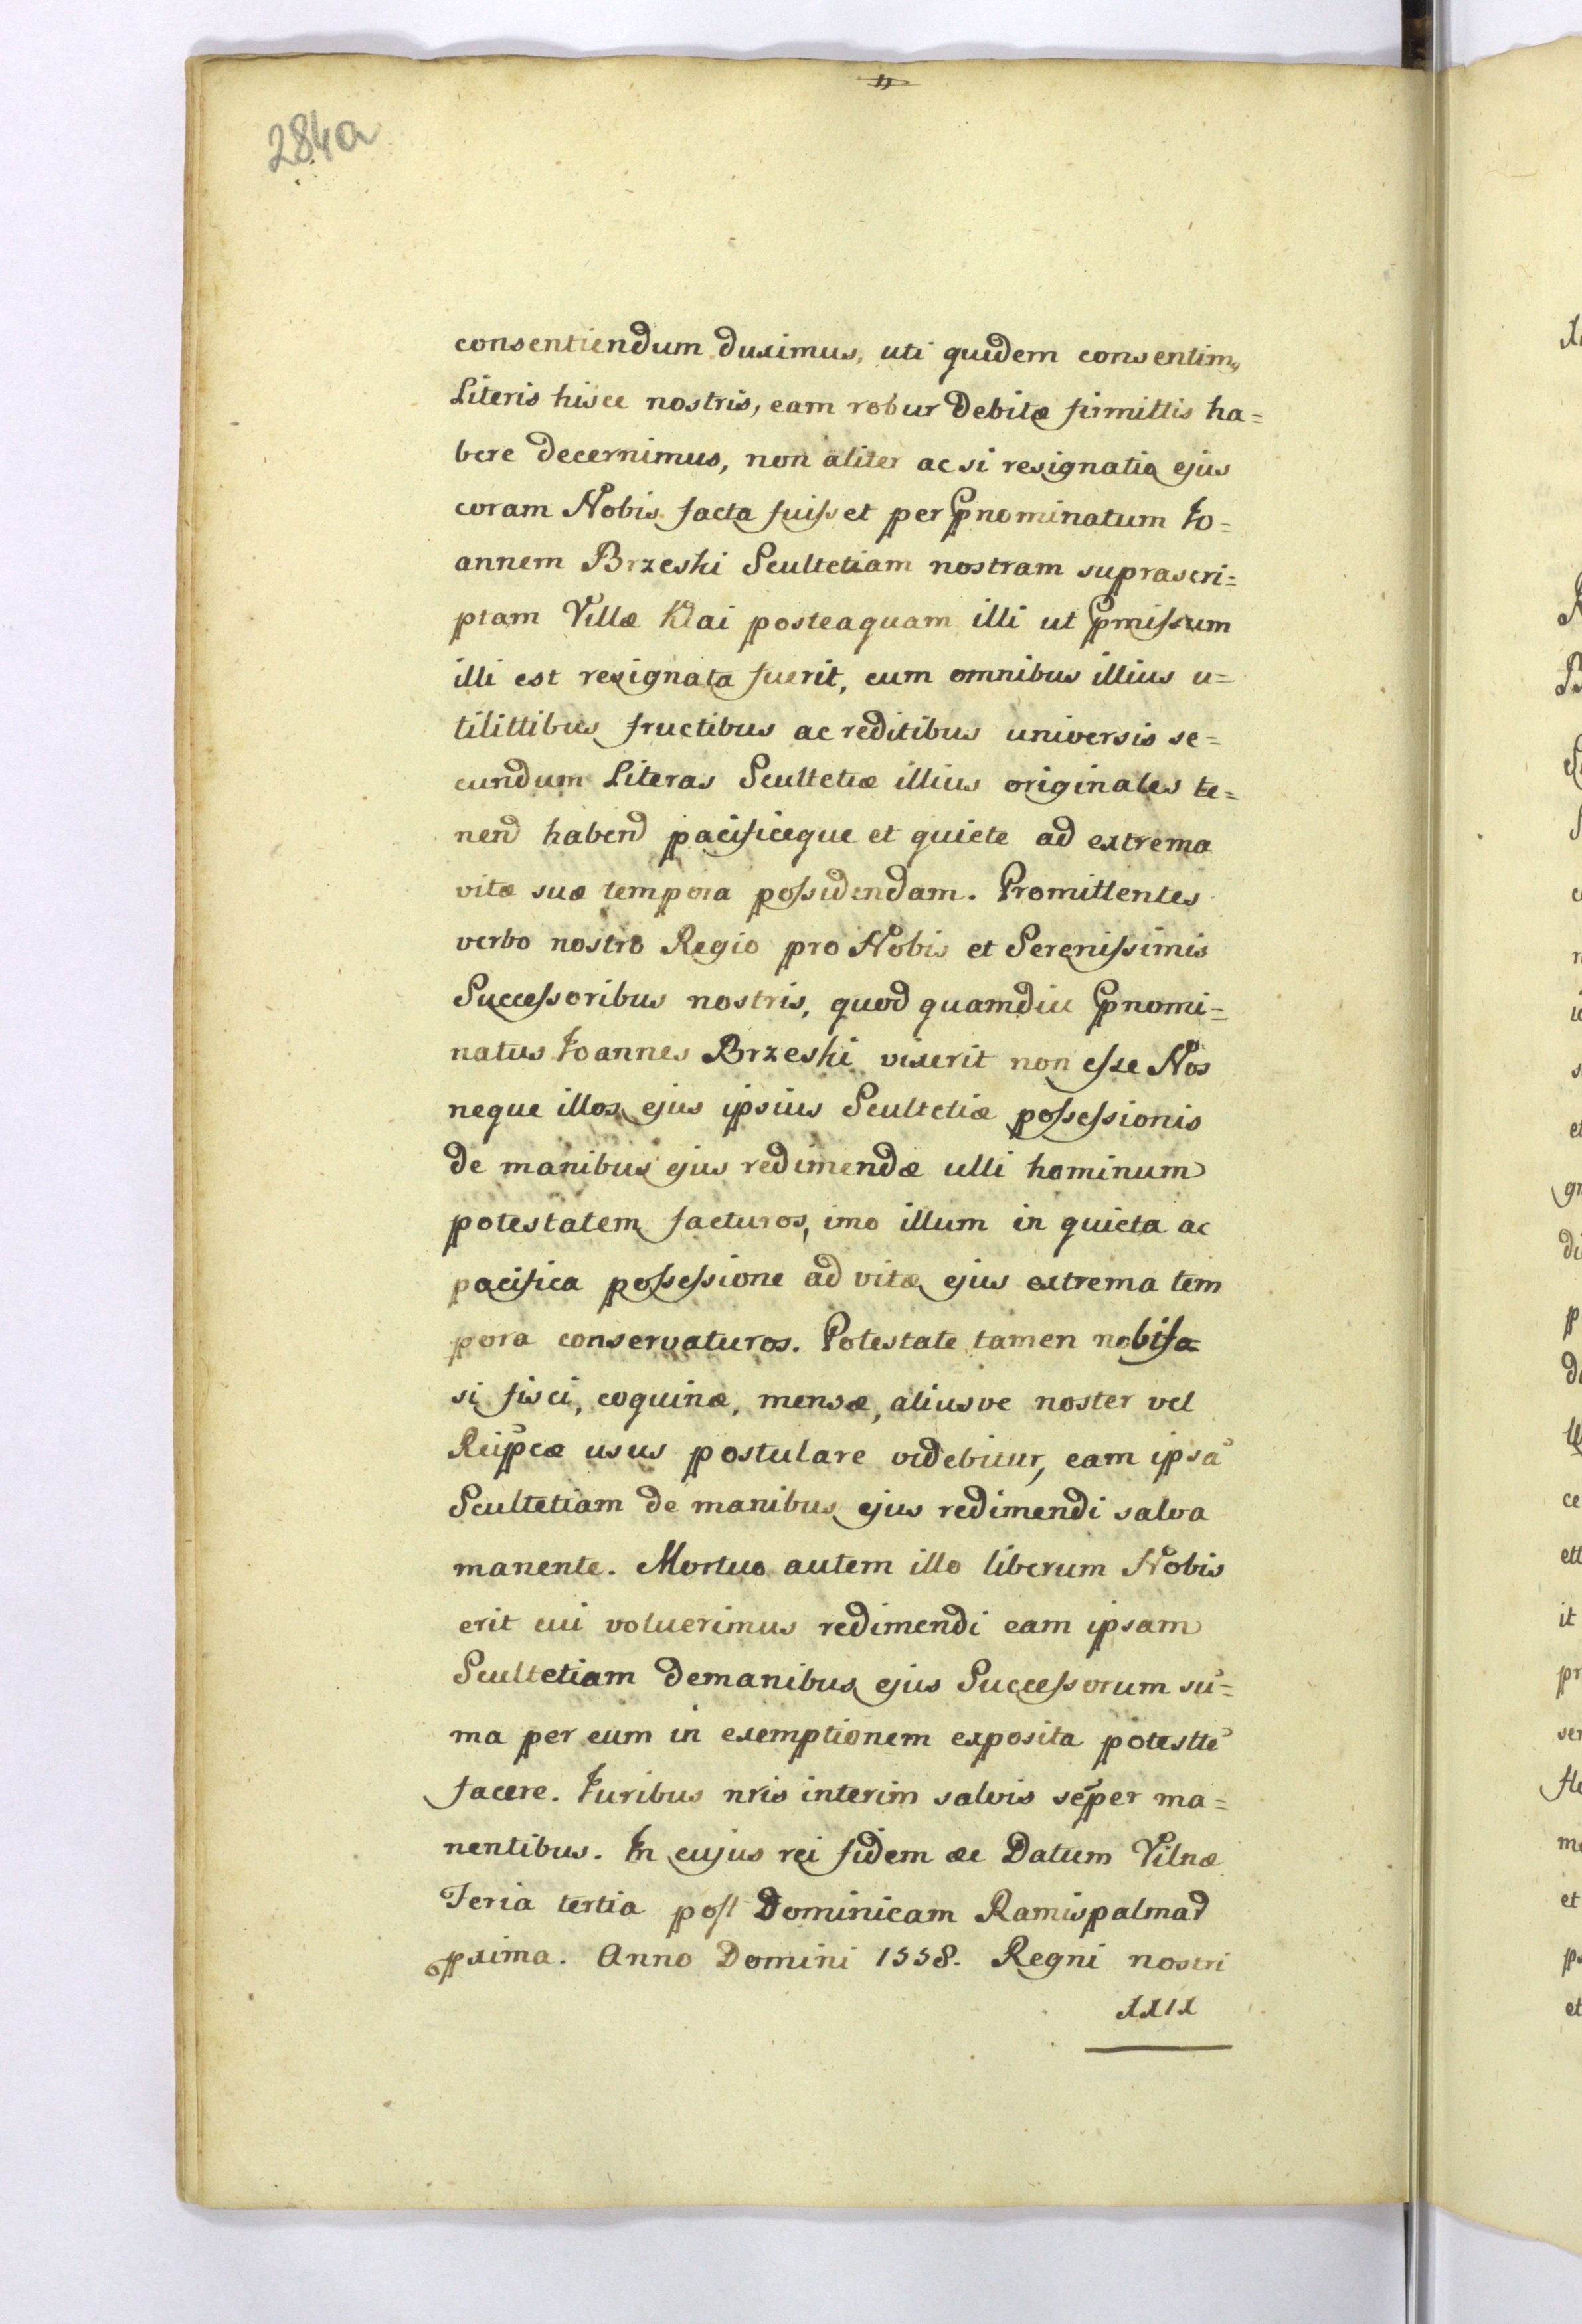 284a
consentiendum duximus, uti quidem consentim,
Literis hisce nostris, eam robur debitæ firmittis ha=
bere decernimus, non aliter ac si resignatio ejus
coram Nobis facta fuisset per Ppnominatum Jo=
annem Brzeski Scultetiam nostram suprascri=
ptam Villæ Klai posteaquam illi ut Ppmissum
illi est resignata fuerit, cum omnibus illius u=
tilittibus fructibus ac reditibus universis se=
cundum Literas Scultetiæ illius originales te=
nend habend pacificeque et quiete ad extrema
vitæ suæ tempora possidendam. Promittentes
verbo nostro Regio pro Nobis et Serenissimis
Successoribus nostris, quod quamdiu Ppnomi=
natus Joannes Brzeski vixerit non esse Nos
neque illos ejus ipsius Scultetiæ possessionis
de manibus ejus redimendæ ulli hominum
potestatem facturos, imo illum in quieta ac
pacifica possessione ad vitæ ejus extrema tem
pora conservaturos. Potestate tamen nobis
si fisci, coquinæ, mensæ, aliusve noster vel
Reipcæ usus postulare videbitur, eam ipsā
Scultetiam de manibus ejus redimendi salva
manente. Mortuo autem illo liberum Nobis
erit cui voluerimus redimendi eam ipsam
Scultetiam demanibus ejus Successorum sū=
ma per eum in exemptionem exposita potesttē
facere. Juribus nris interim salvis sēper ma=
nentibus. In cujus rei fidem &c Datum Vilnæ
Feria tertia post Dominicam Ramispalmad
pxima. Anno Domini 1558. Regni nostri
XXIX